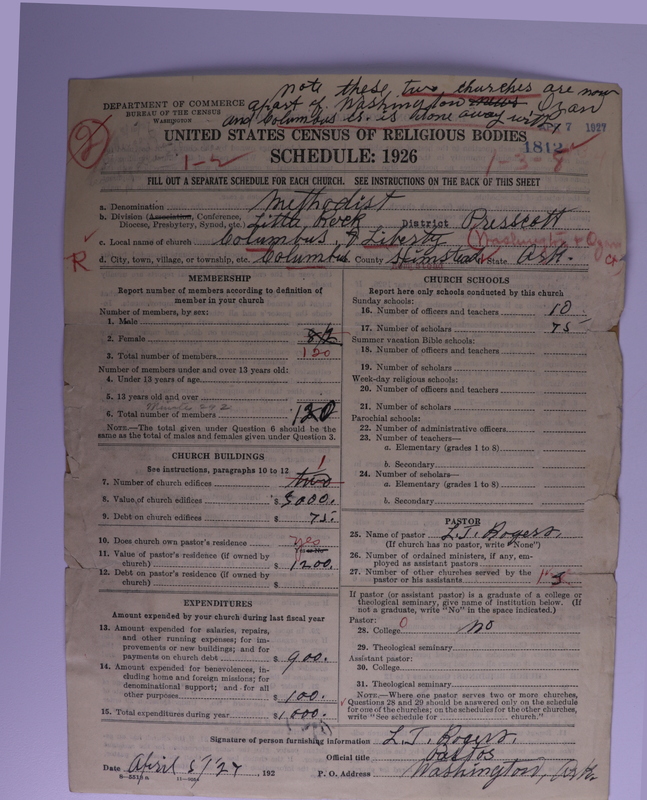 note these two churches are now
DEPARTMENT OF COMMERCE
BUREAU OF THE CENSUS
WASHINGTON
apart of Washington
and Columbus is
7 1927
UNITED STATES CENSUS OF RELIGIOUS BODIES
1812
1-2
SCHEDULE: 1926
1-3-8
FILL OUT A SEPARATE SCHEDULE FOR EACH CHURCH. SEE INSTRUCTIONS ON THE BACK OF THIS SHEET
a. Denomination Methodist
b. Division (Association, Conference, Diocese, Presbytery, Synod, etc.) Little Rock District Prescott
c. Local name of church Columbus, & Liberty (Washington &
R d. City, town, village, or township, etc. Columbus County State Ark.
MEMBERSHIP
Report number of members according to definition of
member in your church
Number of members, by sex:
1. Male
2. Female
3. Total number of members 120
Number of members under and over 13 years old:
4. Under 13 years of age
5. 13 years old and over
6. Total number of members 120
NOTE.—The total given under Question 6 should be the
same as the total of males and females given under Question 3.
CHURCH BUILDINGS
See instructions, paragraphs 10 to 12
7. Number of church edifices two 1
8. Value of church edifices $ 3000.
9. Debt on church edifices $ 75.
10. Does church own pastor's residence yes
Yes or No
11. Value of pastor's residence (if owned by
church) $ 1200.
12. Debt on pastor's residence (if owned by
church) $
EXPENDITURES
Amount expended by your church during last fiscal year
13. Amount expended for salaries, repairs,
and other running expenses; for im-
provements or new buildings; and for
payments on church debt $ 900.
14. Amount expended for benevolences, in-
cluding home and foreign missions; for
denominational support; and for all
other purposes $ 100.
15. Total expenditures during year $ 1,000.
CHURCH SCHOOLS
Report here only schools conducted by this church
Sunday schools:
16. Number of officers and teachers 10
17. Number of scholars 75
Summer vacation Bible schools:
18. Number of officers and teachers
19. Number of scholars
Week-day religious schools:
20. Number of officers and teachers
21. Number of scholars
Parochial schools:
22. Number of administrative officers
23. Number of teachers—
a. Elementary (grades 1 to 8)
b. Secondary
24. Number of scholars—
a. Elementary (grades 1 to 8)
b. Secondary
PASTOR
25. Name of pastor L. T. Rogers
(If church has no pastor, write "None")
26. Number of ordained ministers, if any, em-
ployed as assistant pastors
27. Number of other churches served by the
pastor or his assistants 5
If pastor (or assistant pastor) is a graduate of a college or
theological seminary, give name of institution below. (If
not a graduate, write "No" in the space indicated.)
Pastor: 0
28. College No
29. Theological seminary
Assistant pastor:
30. College
31. Theological seminary
NOTE.—Where one pastor serves two or more churches,
Questions 28 and 29 should be answered only on the schedule
for one of the churches; on the schedules for the other churches,
write "See schedule for church."
Signature of person furnishing information L. T. Rogers.
Official title Pastos
Date April 5/27, 192
P. O. Address Washington, Ark.